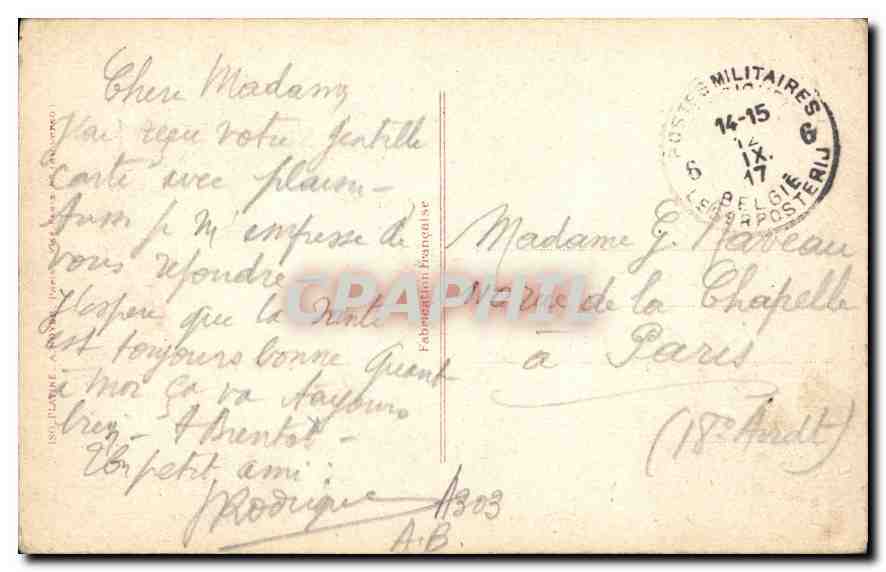 Chere Madame
J'ai reçu votre gentille
carte avec plaisir -
Aussi je m'empresse de
vous repondre
J'espere que la sante
est toujours bonne quant
à moi ça va toujours
bien - A Bientot -
Un petit ami :
Rodrigue A303
A.B.
ISO-PLATINE
Fabrication Française
POSTES MILITAIRES
14-15
12
IX.
17
6 6
BELGIE
LEGERPOSTERIJ
Madame G. Raveau
rue de la Chapelle
a Paris
(18e Arrdt)
CPAPHIL